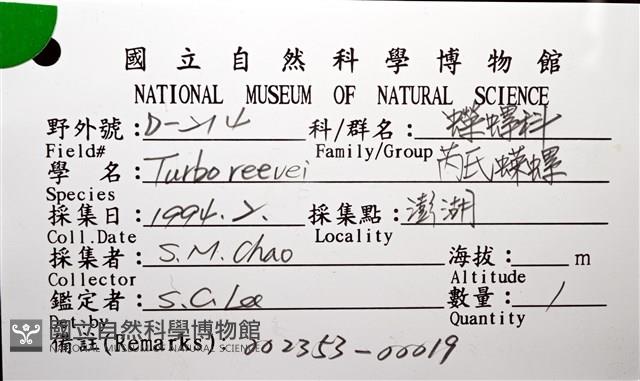 國立自然科學博物館
NATIONAL MUSEUM OF NATURAL SCIENCE
野外號：D-214 科/群名：蠑螺科
Field# Family/Group
學名：Turbo reevei 芮氏蠑螺
Species
採集日：1994.2. 採集點：澎湖
Coll.Date Locality
採集者：S.M.Chao 海拔： m
Collector Altitude
鑑定者：S.C.Lee 數量：1
Det.by Quantity
國立自然科學博物館
NATIONAL MUSEUM OF NATURAL SCIENCE
備註(Remarks). 002353-00019